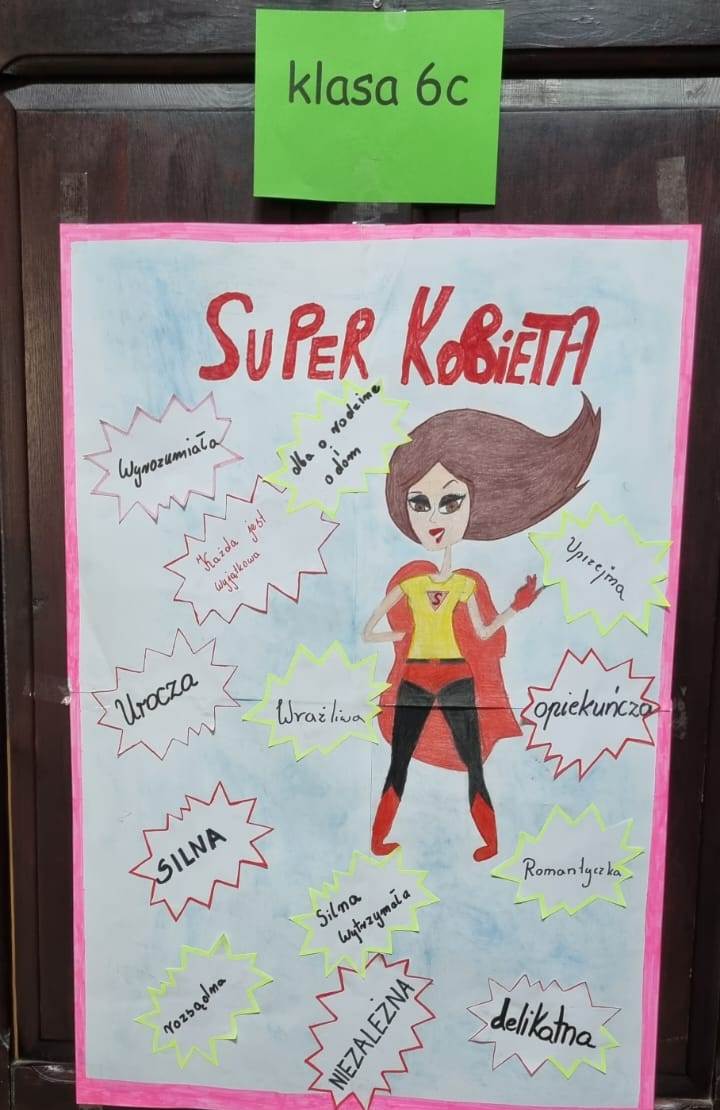 klasa 6c
SUPER KOBIETA
Wyrozumiała
dba o rodzinę
i
o dom
"Każda jest
wyjątkowa
Uprzejma
Urocza
Wrażliwa
opiekuńcza
S
SILNA
Romantyczka
Silna
wytrzymała
rozsądna
NIEZALEŻNA
delikatna